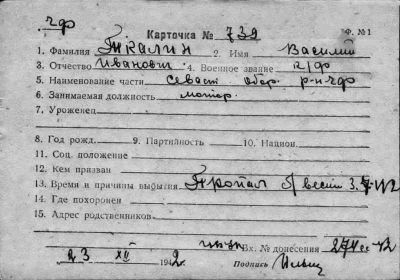 чф
Карточка № 739 Ф. № 1
1. Фамилия Ткалин 2. Имя Василий
3. Отчество Иванович 4. Военное звание к/ф
5. Наименование части Севаст. обор. р-н чф
6. Занимаемая должность мотор.
7. Уроженец
8. Год рожд. 9. Партийность 10. Национ.
11. Соц. положение
12. Кем призван
13. Время и причины выбытия Пропал б/вести 3.7.42
14. Где похоронен
15. Адрес родственников
Вх. № донесения
23 XII 1942 Подпись